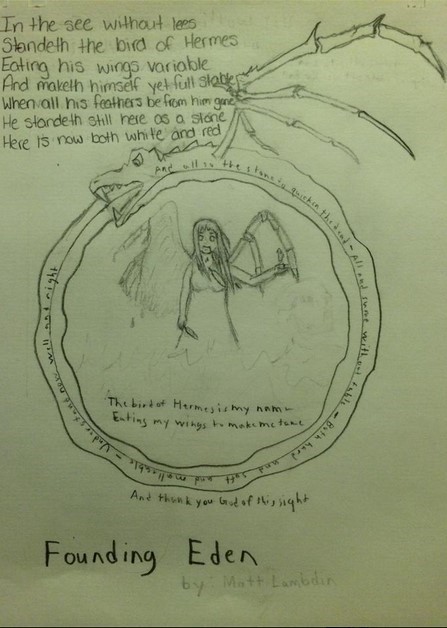 In the see without lees
Standeth the bird of Hermes
Eating his wings variable
And maketh himself yet full stable
When all his feathers be from him gone
He standeth still here as a stone
Here is now both white and red
And all so the stone to quicken the dead - All and sume without fable - Both hard and soft and malleable - Understand now well and right
The bird of Hermes is my name
Eating my wings to make me tame
And thank you God of this sight
Founding Eden
by: Matt Lambdin